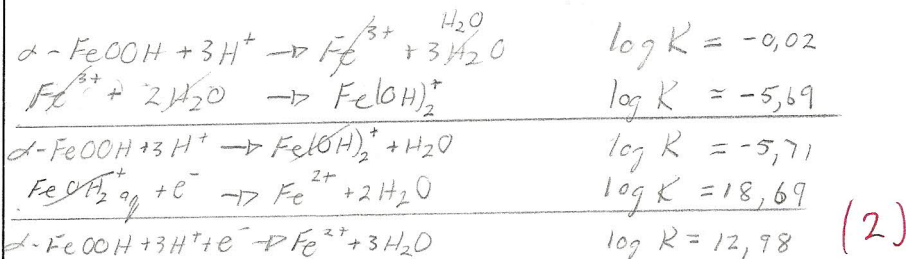 H₂O
α-FeOOH + 3H⁺ → Fe³⁺ + 3H₂O log K = -0,02
Fe³⁺ + 2H₂O → Fe(OH)₂⁺ log K = -5,69
α-FeOOH + 3H⁺ → Fe(OH)₂⁺ + H₂O log K = -5,71
FeOH₂⁺aq + e⁻ → Fe²⁺ + 2H₂O log K = 18,69
α-FeOOH + 3H⁺ + e⁻ → Fe²⁺ + 3H₂O log K = 12,98 (2)